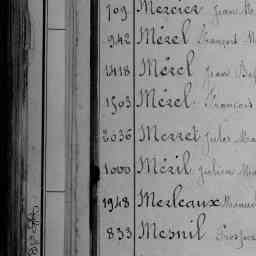 709 Mercier Jean M
942 Mérel François M
1418 Mérel Jean Bap
1503 Mérel François
2036 Merret Jules Ma
1000 Méril Julien Ma
1948 Merleaux Manuel
833 Mesnil Prosper